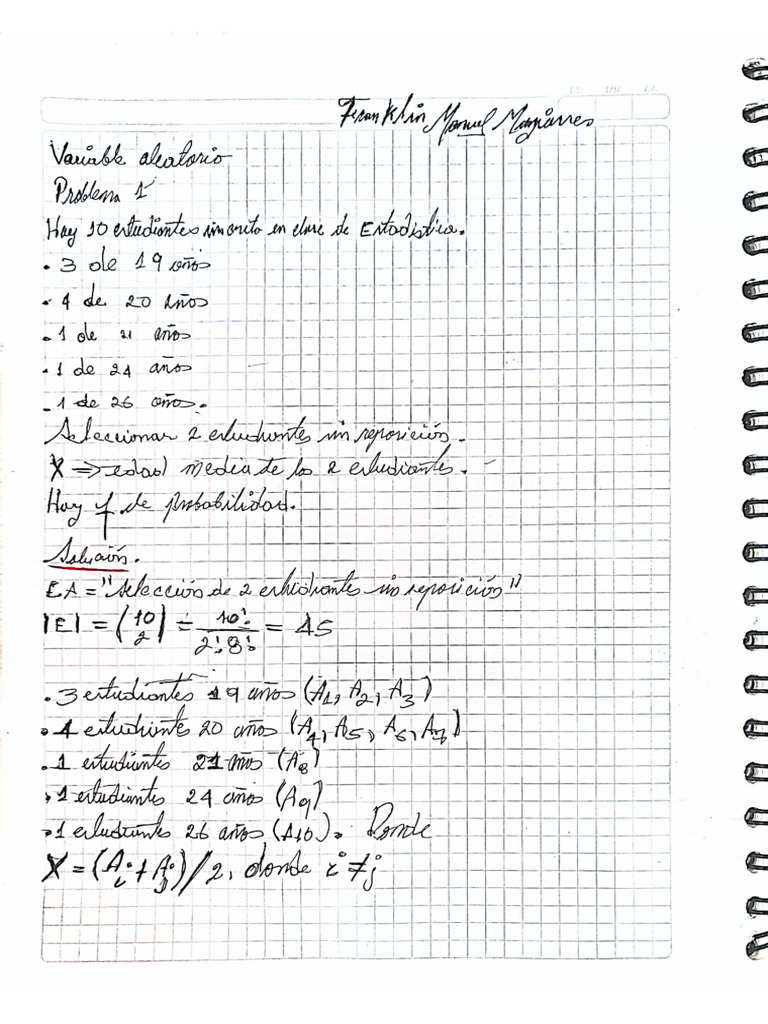 Franklin Manuel Magiarres
Variable aleatorio
Problema 1
Hay 10 estudiantes inscrito en clase de Estadistica.
. 3 de 19 años
. 4 de 20 años
. 1 de 21 años
. 1 de 24 años
. 1 de 26 años.
Seleccionar 2 estudiantes sin reposición.
X => edad media de los 2 estudiantes.
Hay f de probabilidad.
Solución.
EA = "Selección de 2 estudiantes sin reposición"
|E| = (10 2) = 10! / 2!8! = 45
. 3 estudiantes 19 años (A1, A2, A3)
. 4 estudiantes 20 años (A4, A5, A6, A7)
. 1 estudiantes 21 años (A8)
. 1 estudiantes 24 años (A9)
. 1 estudiantes 26 años (A10). Donde
X = (Ai + Aj)/2, donde i ≠ j